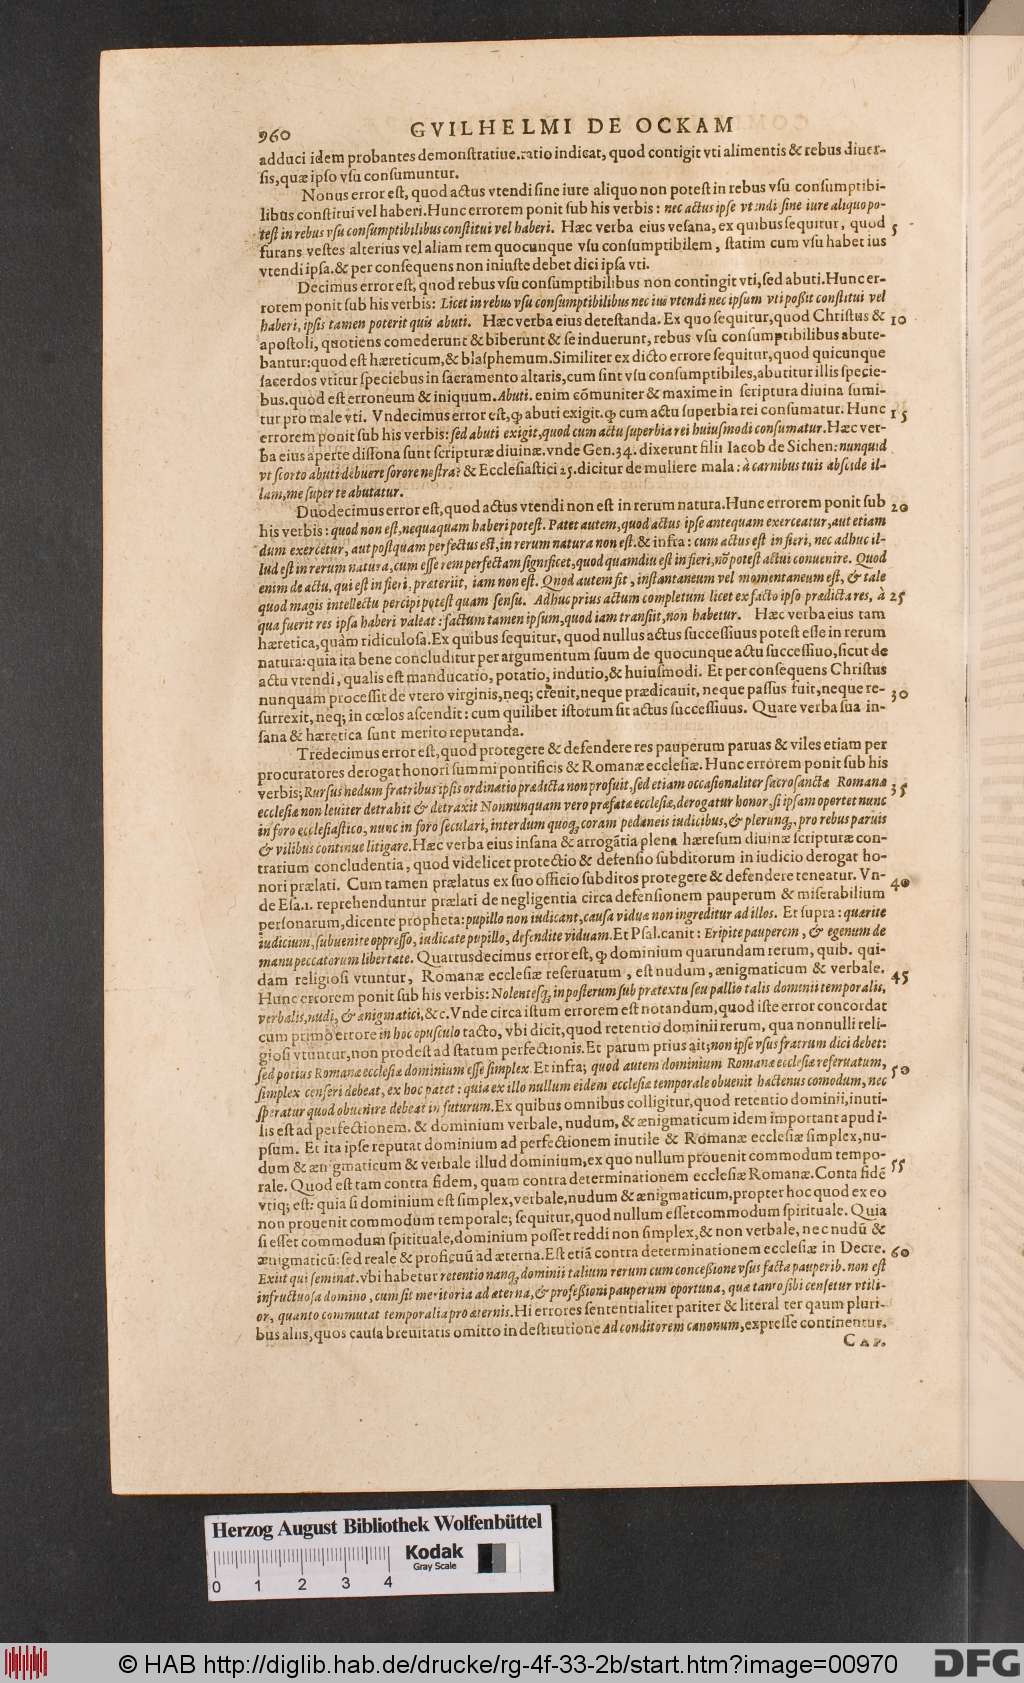 960 GVILHELMI DE OCKAM
adduci idem probantes demonstratiue.ratio indicat, quod contigit vti alimentis & rebus diuer-
sis,quæ ipso vsu consumuntur.
Nonus error est, quod actus vtendi sine iure aliquo non potest in rebus vsu consumptibi-
libus constitui vel haberi.Hunc errorem ponit sub his verbis : nec actus ipse vtendi sine iure aliquo po-
test in rebus vsu consumptibilibus constitui vel haberi. Hæc verba eius vesana, ex quibus sequitur, quod 5
furans vestes alterius vel aliam rem quocunque vsu consumptibilem, statim cum vsu habet ius
vtendi ipsa.& per consequens non iniuste debet dici ipsa vti.
Decimus error est, quod rebus vsu consumptibilibus non contingit vti,sed abuti.Hunc er-
rorem ponit sub his verbis: Licet in rebus vsu consumptibilibus nec ius vtendi nec ipsum vti possit constitui vel
haberi, ipsis tamen poterit quis abuti. Hæc verba eius detestanda. Ex quo sequitur,quod Christus & 10
apostoli, quotiens comederunt & biberunt & se induerunt, rebus vsu consumptibilibus abute-
bantur:quod est hæreticum,& blasphemum.Similiter ex dicto errore sequitur,quod quicunque
sacerdos vtitur speciebus in sacramento altaris,cum sint vsu consumptibiles,abutitur illis specie-
bus.quod est erroneum & iniquum. Abuti. enim cõmuniter & maxime in scriptura diuina sumi-
tur pro male vti. Vndecimus error est, ꝙ abuti exigit. ꝙ cum actu superbia rei consumatur. Hunc 15
errorem ponit sub his verbis: sed abuti exigit,quod cum actu superbia rei huiusmodi consumatur. Hæc ver-
ba eius aperte dissona sunt scripturæ diuinæ.vnde Gen.34. dixerunt filii Iacob de Sichen: nunquid
vt scorto abuti debuere sorore nostra? & Ecclesiastici 25.dicitur de muliere mala: à carnibus tuis abscide il-
lam,me super te abutatur.
Duodecimus error est,quod actus vtendi non est in rerum natura.Hunc errorem ponit sub 20
his verbis: quod non est,nequaquam haberi potest. Patet autem,quod actus ipse antequam exerceatur,aut etiam
dum exercetur, aut postquam perfectus est,in rerum natura non est.& infra: cum actus est in fieri, nec adhuc il-
lud est in rerum natura,cum esse rem perfectam significet,quod quamdiu est in fieri,nõ potest actui conuenire. Quod
enim de actu, qui est in fieri, præteriit, iam non est. Quod autem fit, instantaneum vel momentaneum est, & tale
quod magis intellectu percipi potest quam sensu. Adhuc prius actum completum licet ex facto ipso prædicta res, à 25
qua fuerit res ipsa haberi valeat: factum tamen ipsum,quod iam transiit,non habetur. Hæc verba eius tam
hæretica,quàm ridiculosa.Ex quibus sequitur, quod nullus actus successiuus potest esse in rerum
natura:quia ita bene concluditur per argumentum suum de quocunque actu successiuo,sicut de
actu vtendi, qualis est manducatio, potatio, indutio,& huiusmodi. Et per consequens Christus
nunquam processit de vtero virginis,neq; creuit,neque prædicauit, neque passus fuit,neque re- 30
surrexit, neq; in cœlos ascendit: cum quilibet istorum sit actus successiuus. Quare verba sua in-
sana & hæretica sunt merito reputanda.
Tredecimus error est,quod protegere & defendere res pauperum paruas & viles etiam per
procuratores derogat honori summi pontificis & Romanæ ecclesiæ. Hunc errorem ponit sub his
verbis; Rursus nedum fratribus ipsis ordinatio prædicta non profuit,sed etiam occasionaliter sacrosanctæ Romanæ 35
ecclesiæ non leuiter detrahit & detraxit Nonnunquam vero præfatæ ecclesiæ,derogatur honor,si ipsam oportet nunc
in foro ecclesiastico,nunc in foro seculari, interdum quoq; coram pedaneis iudicibus,& plerunq;, pro rebus paruis
& vilibus continue litigare. Hæc verba eius insana & arrogãtia plena hæresum diuinæ scripturæ con-
trarium concludentia, quod videlicet protectio & defensio subditorum in iudicio derogat ho-
nori prælati. Cum tamen prælatus ex suo officio subditos protegere & defendere teneatur. Vn- 40
de Esa.1. reprehenduntur prælati de negligentia circa defensionem pauperum & miserabilium
personarum,dicente propheta: pupillo non iudicant,causa viduæ non ingreditur ad illos. Et supra: quærite
iudicium,subuenite oppresso, iudicate pupillo, defendite viduam. Et Psal.canit: Eripite pauperem, & egenum de
manu peccatorum libertate. Quartusdecimus error est, ꝙ dominium quarundam rerum, quib. qui-
dam religiosi vtuntur, Romanæ ecclesiæ reseruatum, est nudum, ænigmaticum & verbale. 45
Hunc errorem ponit sub his verbis: Nolentesq; in posterum sub prætextu seu pallio talis dominii temporalis,
verbalis,nudi, & ænigmatici,&c. Vnde circa istum errorem est notandum,quod iste error concordat
cum primo errore in hoc opusculo tacto, vbi dicit,quod retentio dominii rerum, qua nonnulli reli-
giosi vtuntur,non prodest ad statum perfectionis.Et parum prius ait; non ipse vsus fratrum dici debet:
sed potius Romanæ ecclesiæ dominium esse simplex. Et infra; quod autem dominium Romanæ ecclesiæ reseruatum, 50
simplex censeri debeat, ex hoc patet: quia ex illo nullum eidem ecclesiæ temporale obuenit hactenus comodum, nec
speratur quod obuenire debeat in futurum. Ex quibus omnibus colligitur,quod retentio dominii,inuti-
lis est ad perfectionem. & dominium verbale, nudum, & ænigmaticum idem important apud i-
psum. Et ita ipse reputat dominium ad perfectionem inutile & Romanæ ecclesiæ simplex,nu-
dum & ænigmaticum & verbale illud dominium,ex quo nullum prouenit commodum tempo- 55
rale. Quod est tam contra fidem, quam contra determinationem ecclesiæ Romanæ.Conta fidẽ
vtiq; est: quia si dominium est simplex,verbale,nudum & ænigmaticum,propter hoc quod ex eo
non prouenit commodum temporale; sequitur,quod nullum esset commodum spirituale. Quia
si esset commodum spitituale,dominium posset reddi non simplex,& non verbale, nec nudũ &
ænigmaticũ: sed reale & proficuũ ad æterna.Est etiã contra determinationem ecclesiæ in Decre. 60
Exiit qui seminat. vbi habetur retentio nanq; dominii talium rerum cum concessione vsus facta pauperib. non est
infructuosa domino, cum sit meritoria ad æterna,& professioni pauperum oportuna, quæ tanto sibi censetur vtili-
or, quanto commutat temporalia pro æternis. Hi errores sententialiter pariter & literal ter qaum pluri-
bus aliis,quos causa breuitatis omitto in destitutione Ad conditorem canonum, expresse continentur.
CAP.
Herzog August Bibliothek Wolfenbüttel
Kodak
Gray Scale
0 1 2 3 4
© HAB http://diglib.hab.de/drucke/rg-4f-33-2b/start.htm?image=00970
DFG